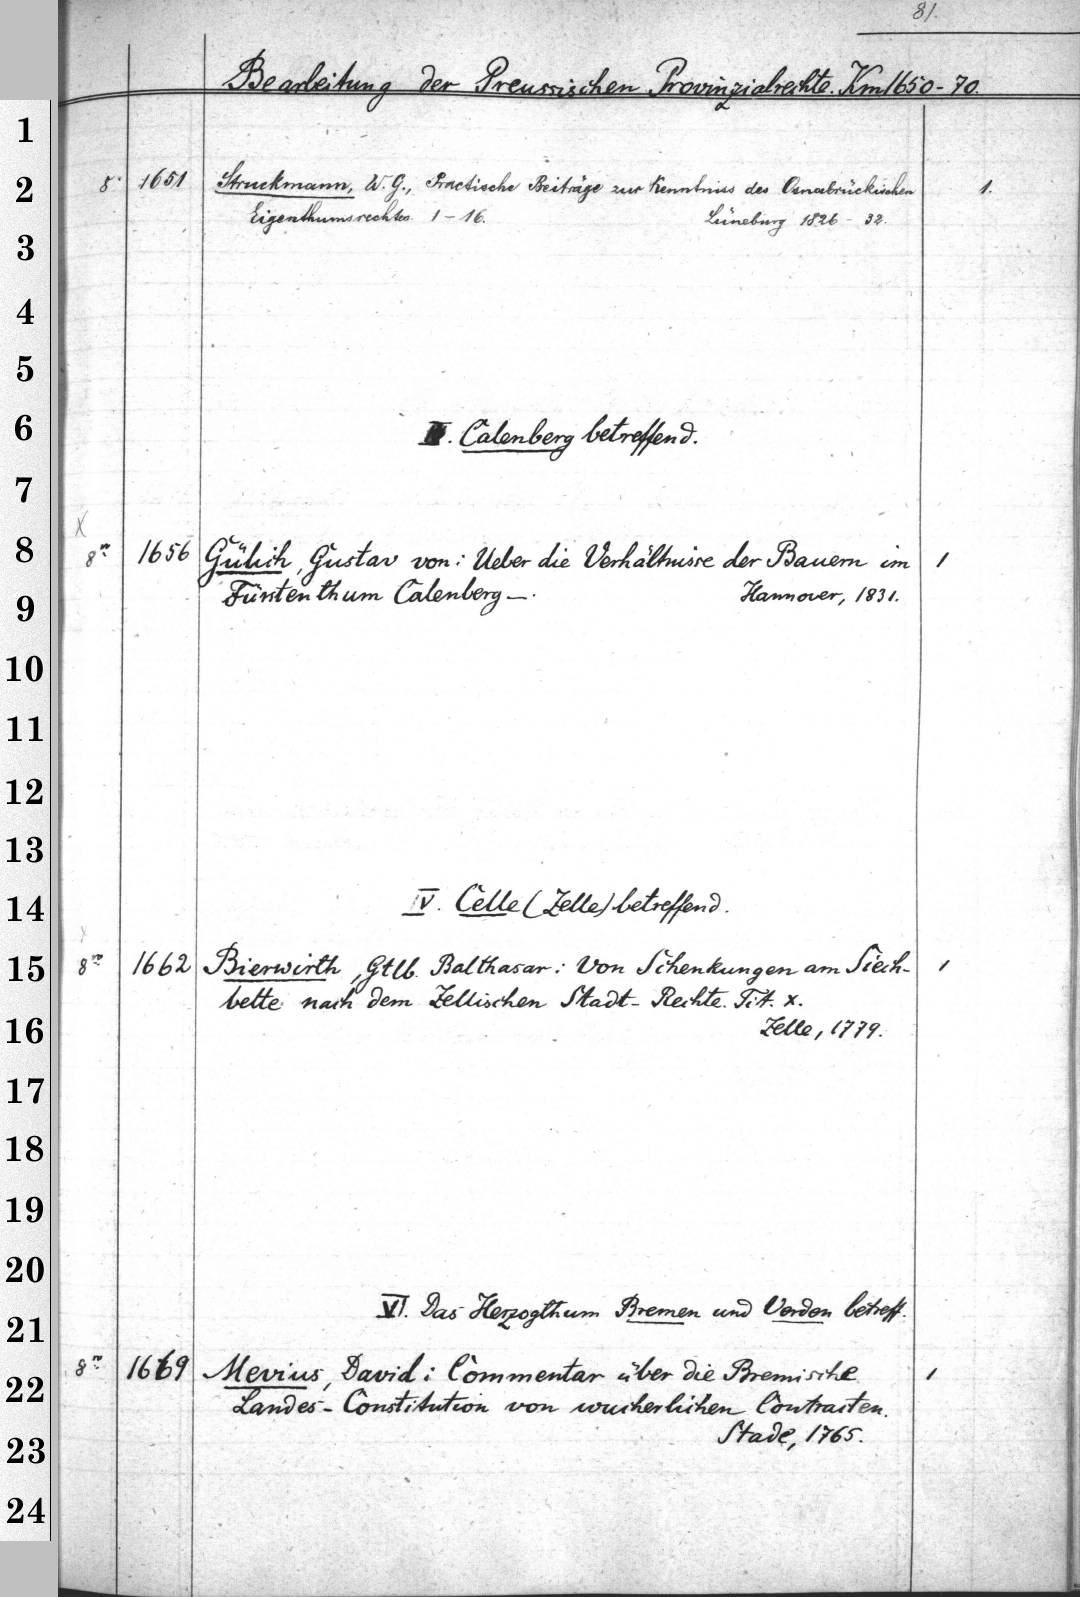 81.
Bearbeitung der Preussischen Provinzialrechte. Km 1650-70.
1
2
8° 1651 Struckmann, W. G., Practische Beiträge zur Kenntniss des Osnabrückischen 1.
Eigenthumsrechtes. 1-16. Lüneburg 1826-32.
3
4
5
6
. Calenberg betreffend.
7
8
8vo 1656 Gülich, Gustav von: Ueber die Verhältnisse der Bauern im 1
9
Fürstenthum Calenberg—. Hannover, 1831.
10
11
12
13
14
IV. Celle (Zelle) betreffend.
15
8vo 1662 Bierwirth, Gtlb. Balthasar: Von Schenkungen am Siech- 1
bette nach dem Zellischen Stadt-Rechte. Tit. X.
16
Zelle, 1779.
17
18
19
20
21
VI. Das Herzogthum Bremen und Verden betreff.
22
8vo 1669 Mevius, David: Commentar über die Bremische 1
Landes-Constitution von wucherlichen Contracten.
23
Stade, 1765.
24